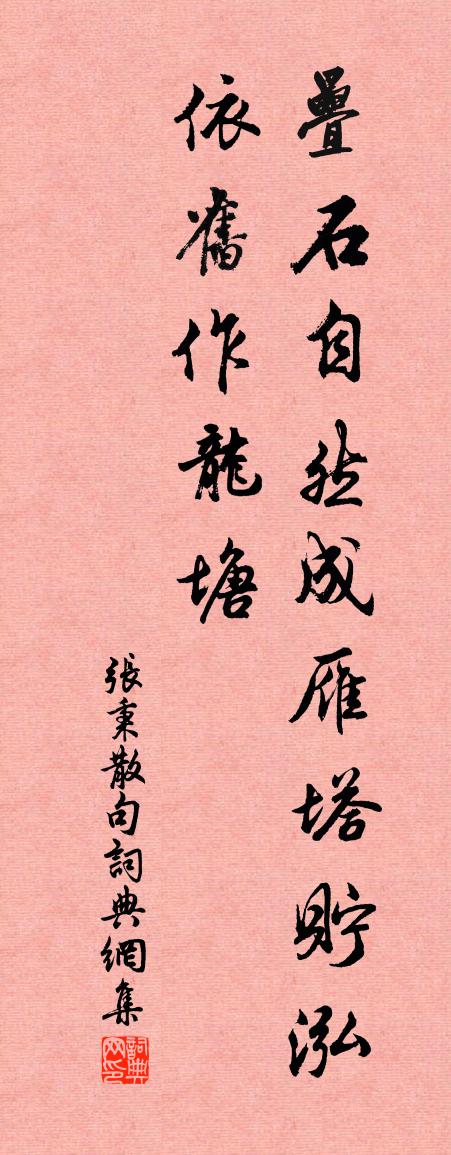 疊石自然成雁塔貯泓
依舊作龍塘
張秉散句詞典網集
詞典网印